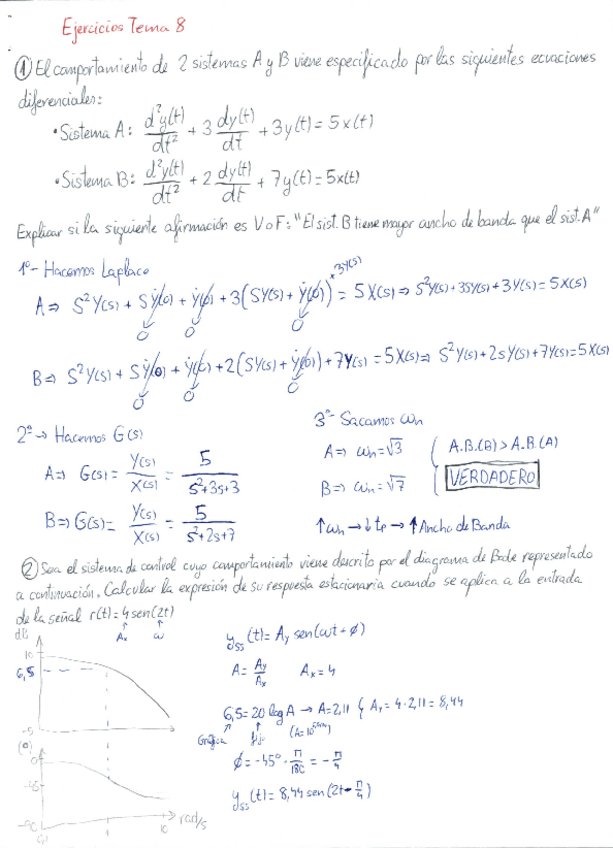 Ejercicios Tema 8
① El comportamiento de 2 sistemas A y B viene especificado por las siguientes ecuaciones
diferenciales:
• Sistema A: d²y(t)/dt² + 3 dy(t)/dt + 3y(t) = 5x(t)
• Sistema B: d²y(t)/dt² + 2 dy(t)/dt + 7y(t) = 5x(t)
Explicar si la siguiente afirmación es V o F: "El sist. B tiene mayor ancho de banda que el sist. A"
1º- Hacemos Laplace
A ⇒ S²Y(s) + Sẏ(0) + ẏ(0) + 3(SY(s) + ẏ(0)) + 3Y(s) = 5X(s) ⇒ S²Y(s) + 3SY(s) + 3Y(s) = 5X(s)
0 0 0
B ⇒ S²Y(s) + Sẏ(0) + ẏ(0) + 2(SY(s) + ẏ(0)) + 7Y(s) = 5X(s) ⇒ S²Y(s) + 2SY(s) + 7Y(s) = 5X(s)
0 0 0
2º → Hacemos G(s)
A ⇒ G(s) = Y(s)/X(s) = 5/(s²+3s+3)
B ⇒ G(s) = Y(s)/X(s) = 5/(s²+2s+7)
3º- Sacamos ωn
A ⇒ ωn = √3
B ⇒ ωn = √7
A.B.(B) > A.B.(A)
VERDADERO
↑ωn → ↓tp → ↑Ancho de Banda
② Sea el sistema de control cuyo comportamiento viene descrito por el diagrama de Bode representado
a continuación. Calcular la expresión de su respuesta estacionaria cuando se aplica a la entrada
de la señal r(t) = 4 sen(2t)
Ax ω
dB
10
6,5
-5
(°)
0
-45
-90
1
10
rad/s
yss(t) = Ay sen(ωt + φ)
A = Ay/Ax Ax = 4
6,5 = 20 log A → A = 2,11 Ay = 4·2,11 = 8,44
Gráfica fijo
φ = -45° · π/180 = -π/4
yss(t) = 8,44 sen(2t - π/4)